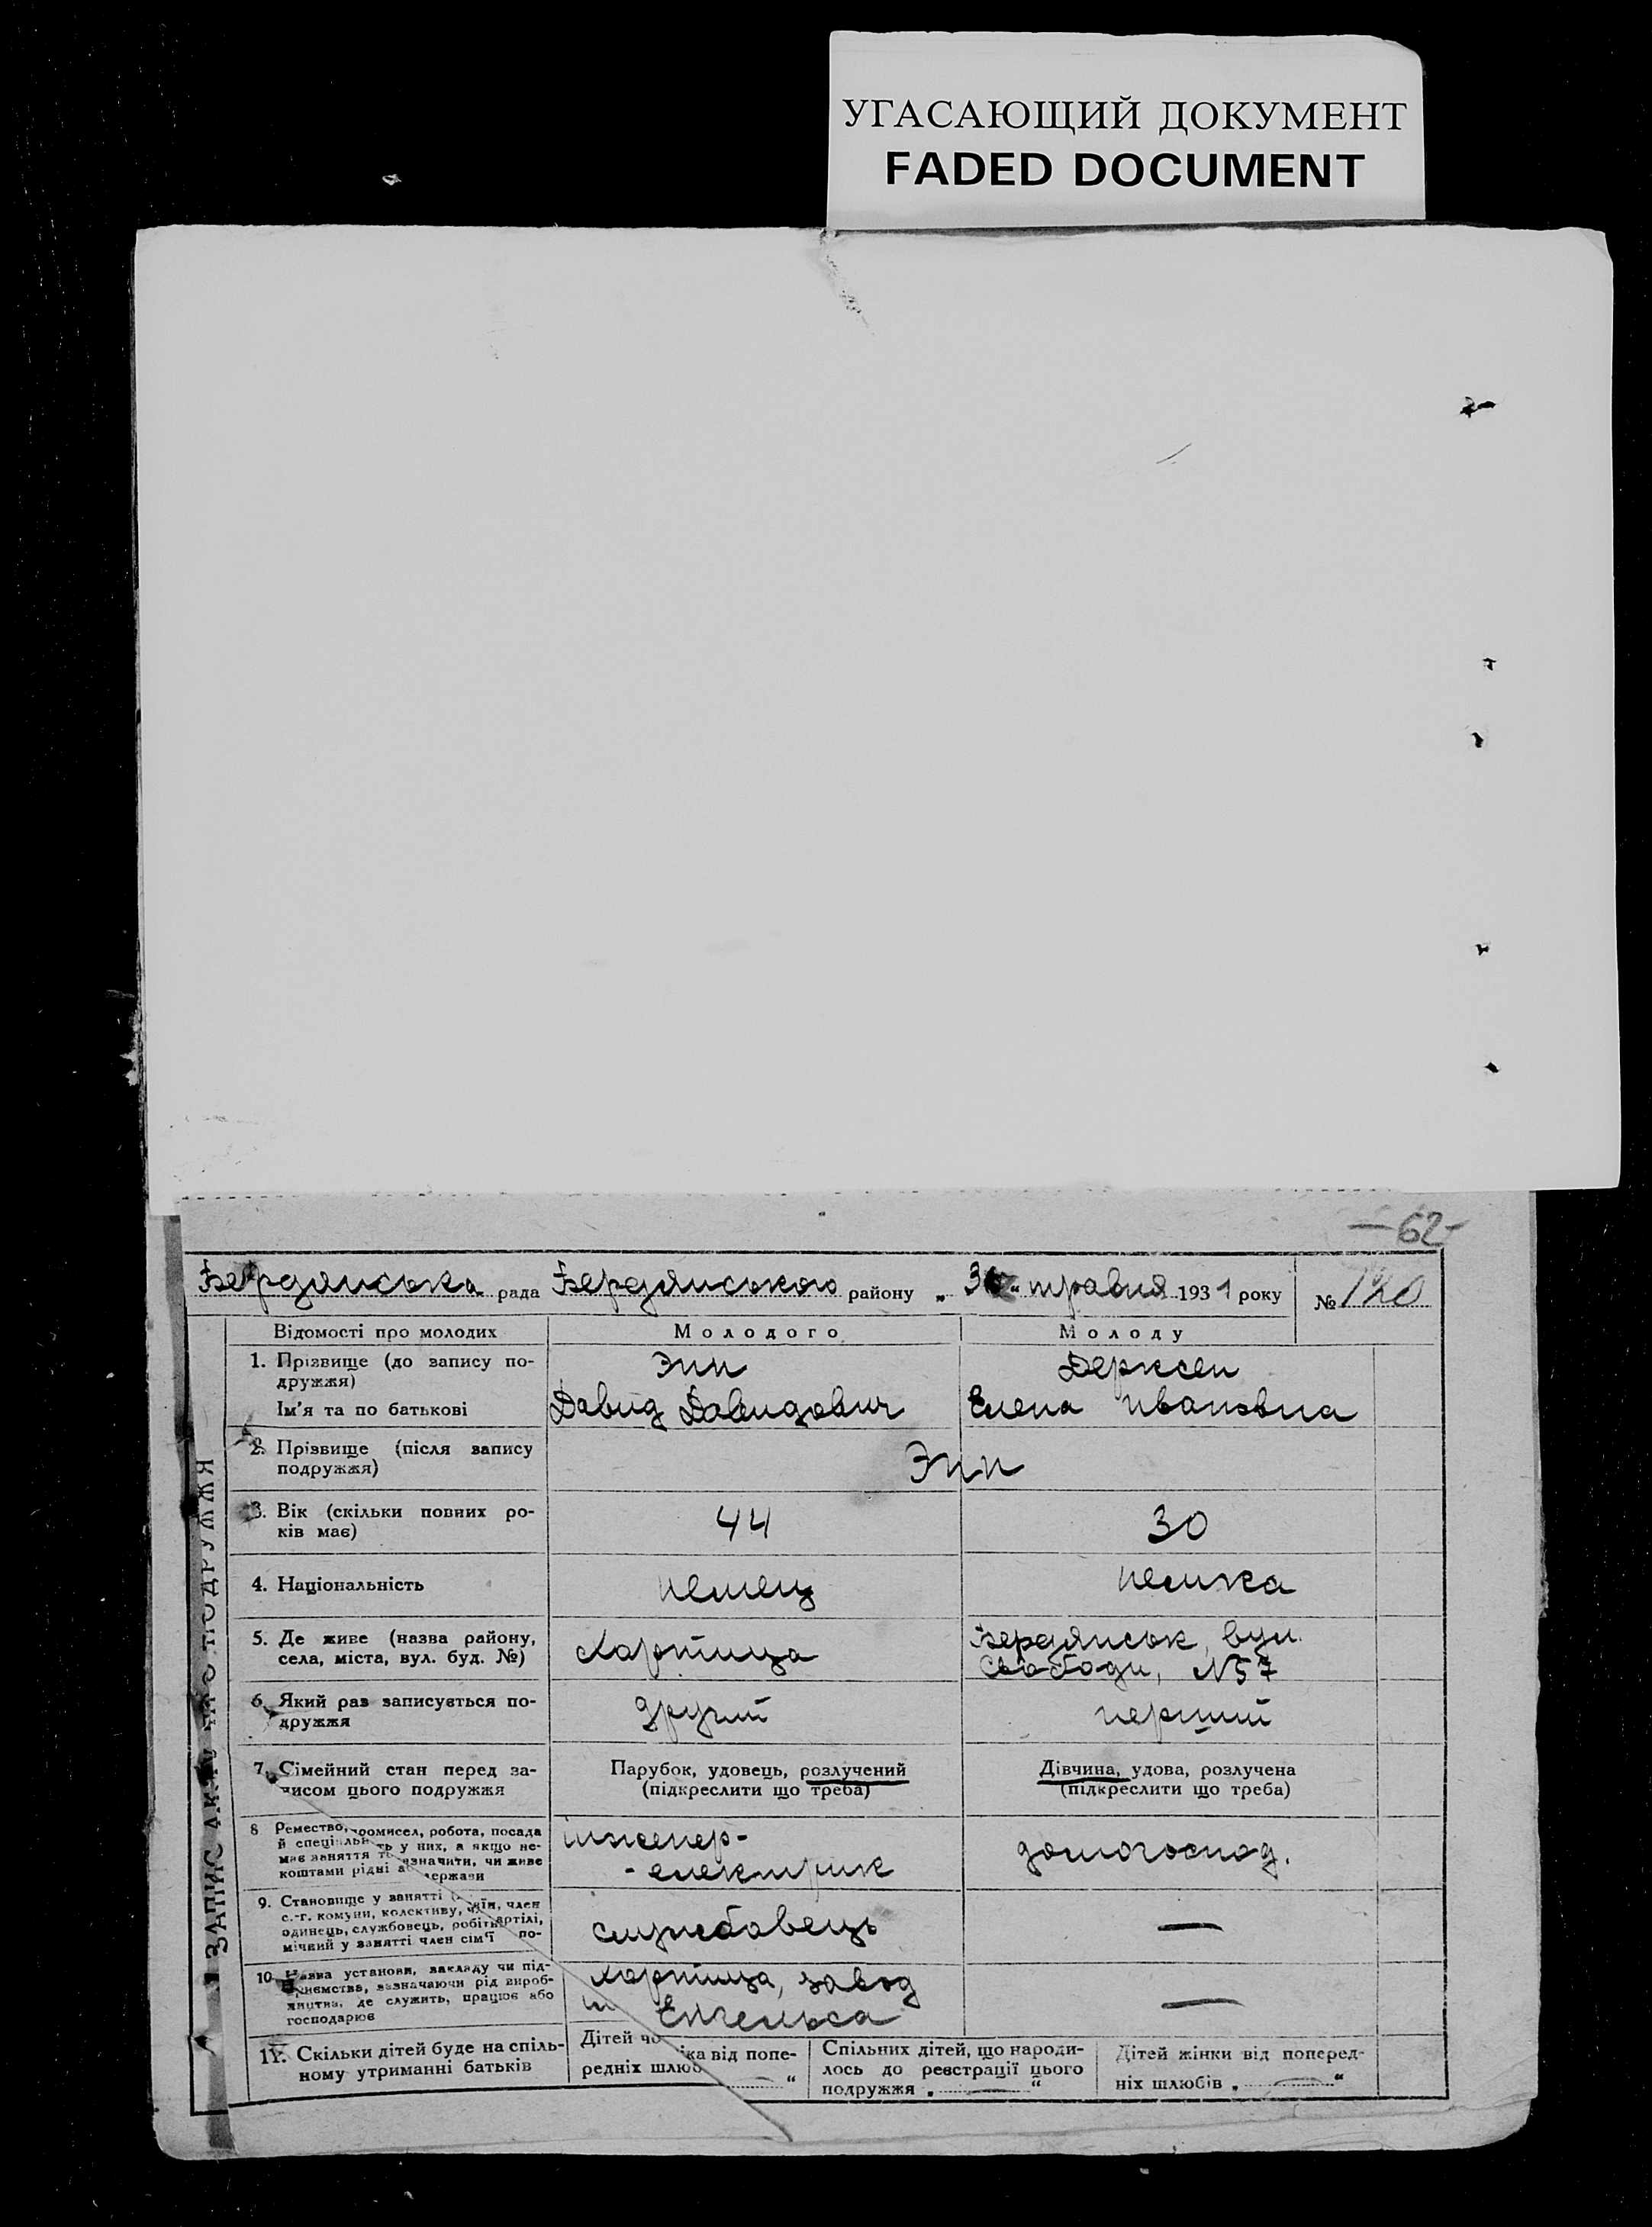 УГАСАЮЩИЙ ДОКУМЕНТ
FADED DOCUMENT
—62-
Бердянська рада Бердянського району „ 30 “ травня 1931 року № 120
ЗАПИС АКТУ ПРО ПОДРУЖЖЯ
Відомості про молодих
Молодого
Молоду
1. Прізвище (до запису по-
дружжя)
Ім'я та по батькові
Эпп
Давид Давидович
Дерксен
Елена Ивановна
2. Прізвище (після запису
подружжя)
Эпп
3. Вік (скільки повних ро-
ків має)
44
30
4. Національність
немец
немка
5. Де живе (назва району,
села, міста, вул. буд. №)
Хортица
Бердянськ, вул.
Свободи, №57
6. Який раз записується по-
дружжя
другий
перший
7. Сімейний стан перед за-
писом цього подружжя
Парубок, удовець, розлучений
(підкреслити що треба)
Дівчина, удова, розлучена
(підкреслити що треба)
8 Ремество, промисел, робота, посада
й спеціальн ть у них, а якщо не-
має заняття то зазначити, чи живе
коштами рідні а держави
інженер-
-електрик
домогоспод.
9. Становище у занятті
с.-г. комуни, колективу, член
одинець, службовець, робіт артілі,
мічний у занятті член сім'ї по-
службовець
—
10. Назва установи, закладу чи під-
приємства, зазначаючи рід вироб-
ництва, де служить, працює або
господарює
Хортица, завод
Енгельса
—
11. Скільки дітей буде на спіль-
ному утриманні батьків
Дітей чо іка від попе-
редніх шлюб — “
Спільних дітей, що народи-
лось до реєстрації цього
подружжя „ — “
Дітей жінки від поперед-
ніх шлюбів „ — “